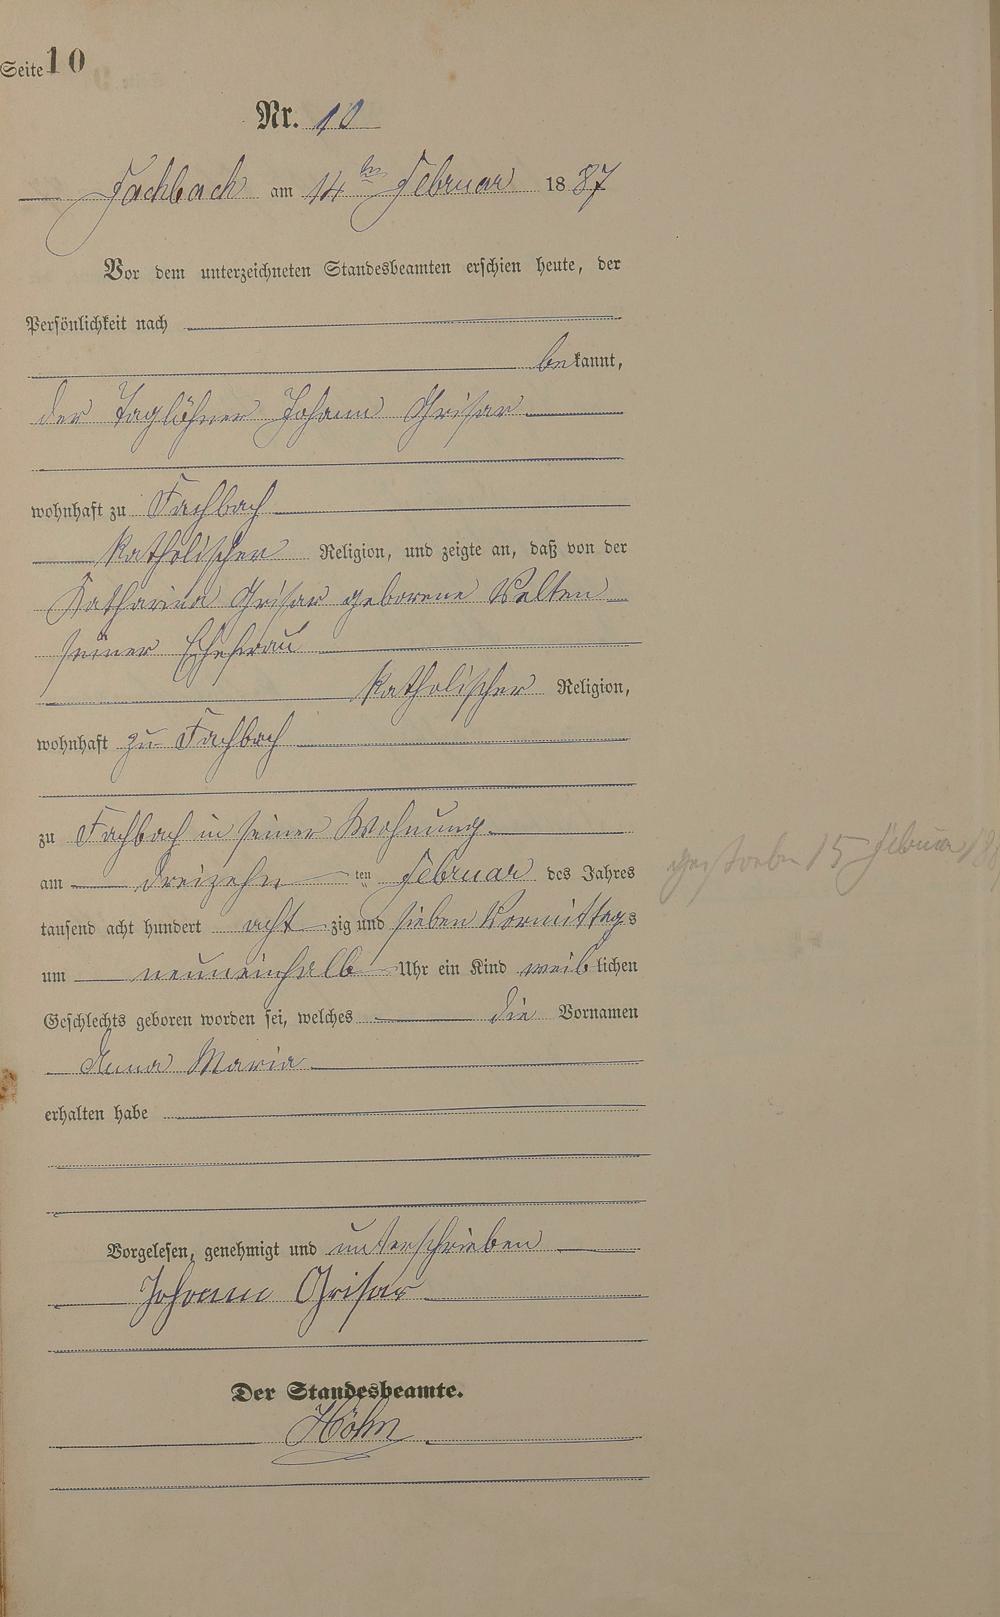 Seite 10
Nr. 10
Fachbach am 14ten Februar 1887
Vor dem unterzeichneten Standesbeamten erschien heute, der
Persönlichkeit nach
bekannt,
der Taglöhner Johann Grisar
wohnhaft zu Fachbach
katholischer Religion, und zeigte an, daß von der
Katharina Grisar geborene Velten
seiner Ehefrau
katholischer Religion,
wohnhaft zu Fachbach
zu Fachbach in seiner Wohnung
am dreizehn ten Februar des Jahres
tausend acht hundert acht zig und sieben Vormittags
um neuneinhalb Uhr ein Kind weiblichen
Geschlechts geboren worden sei, welches die Vornamen
Anna Maria
erhalten habe
gestorben 15 Februar
Vorgelesen, genehmigt und unterschrieben
Johann Grisar
Der Standesbeamte.
Höhn